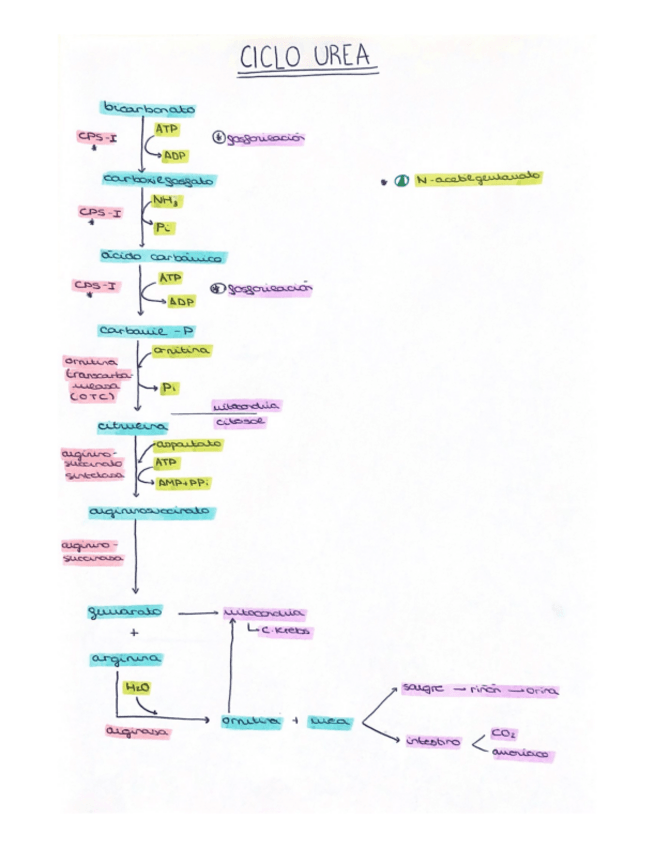 CICLO UREA
bicarbonato
CPS-I
ATP
ADP
fosforilación
carboxilfosfato
N-acetilglutamato
CPS-I
NH₃
Pi
ácido carbámico
CPS-I
ATP
ADP
fosforilación
carbamil-P
ornitina
transcarba-
milasa
(OTC)
ornitina
Pi
mitocondria
citosol
citrulina
arginino-
succinato
sintetasa
aspartato
ATP
AMP+PPi
argininosuccinato
arginino-
succinasa
fumarato
mitocondria
C. Krebs
+
arginina
H₂O
arginasa
ornitina + urea
sangre → riñón → orina
intestino
CO₂
amoníaco